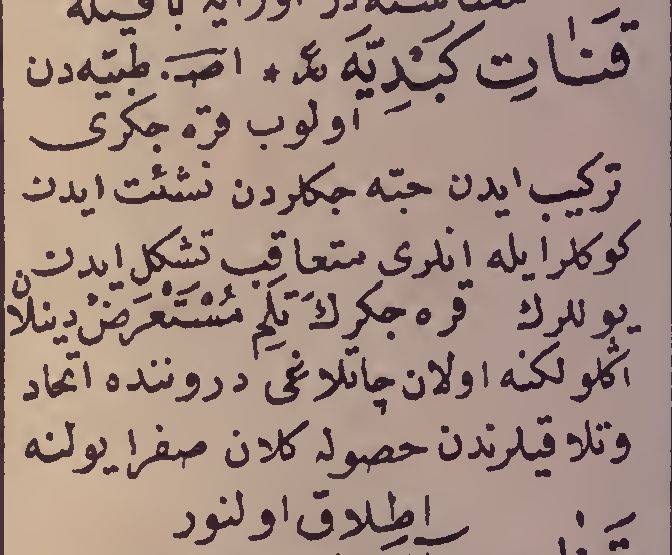 قَنَاتِ كَبَدِيَّه * اصـ. طبيّه‌دن
اولوب قره جكرى
تركيب ايدن حبّه جكلردن نشئت ايدن
كوكلر ايله انلرى متعاقب تشكل ايدن
يوللرك قره جكرك تَلَمِ مُسْتَعْرَضْ دينلان
اڭلولكنه اولان چاتلاغى دروننده اتحاد
وتلاقيلرندن حصوله كلان صفرا يولنه
اطلاق اولنور